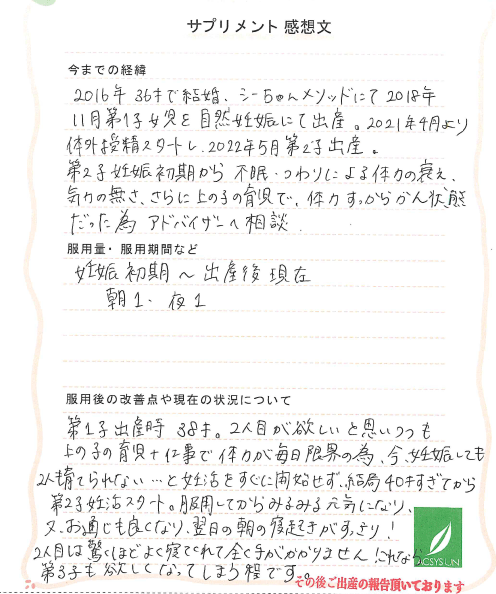 サプリメント 感想文
今までの経緯
2016年 36才で結婚、シーちゃんメソッドにて2018年
11月第1子女児を自然妊娠にて出産。2021年4月より
体外授精スタートし、2022年5月第2子出産。
第2子妊娠初期から不眠・つわりによる体力の衰え、
気力の無さ、さらに上の子の育児で、体力すっからかん状態
だった為 アドバイザーへ相談.
服用量・服用期間など
妊娠初期～出産後現在
朝1・夜1
服用後の改善点や現在の状況について
第1子出産時 38才。2人目が欲しいと思いつつも
上の子の育児+仕事で体力が毎日限界の為、今、妊娠しても
2人も育てられない…と妊活をすぐに開始せず、結局40才すぎてから
第2子妊活スタート。服用してからみるみる元気になり、
又、お通じも良くなり、翌日の朝の寝起きがすっきり!
2人目は驚くほどよく寝てくれて全く手がかかりません!これなら
第3子も欲しくなってしまう程です。
その後ご出産の報告頂いております